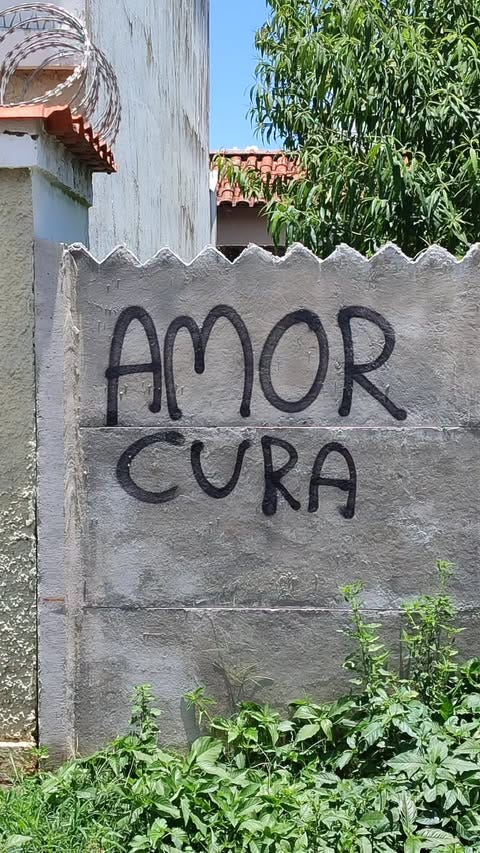 AMOR
CURA